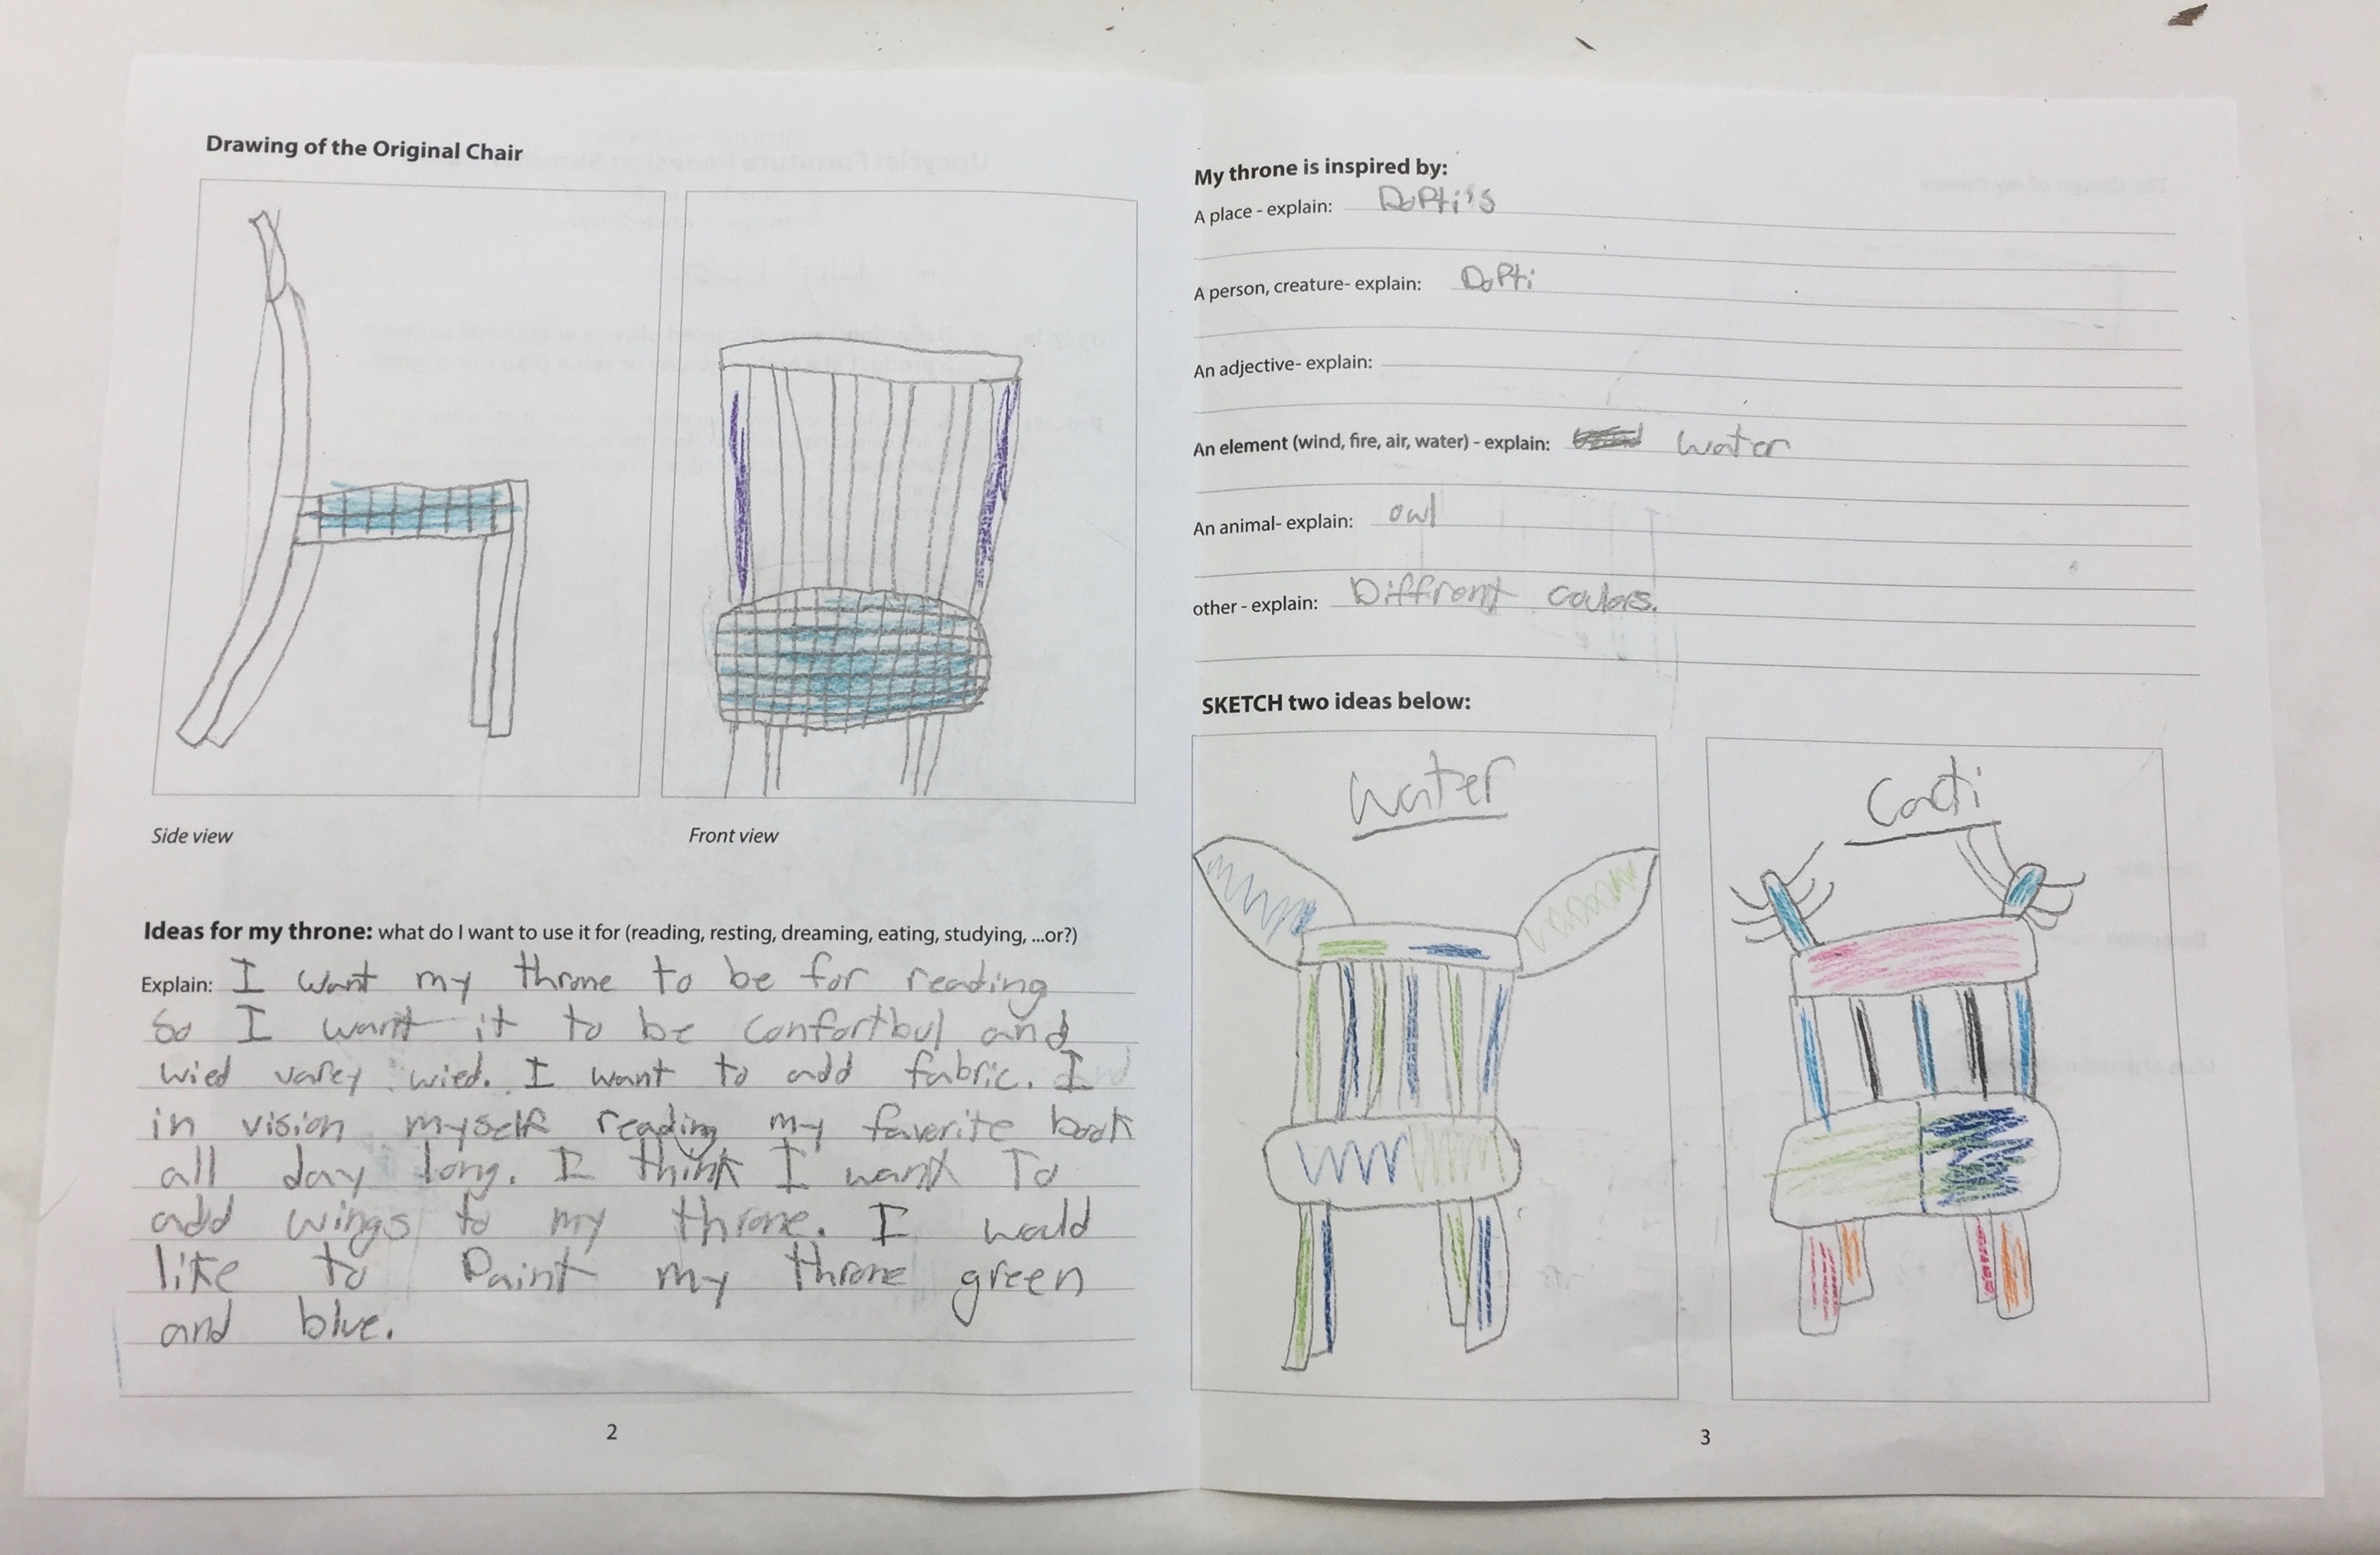 Drawing of the Original Chair
Side view
Front view
Ideas for my throne: what do I want to use it for (reading, resting, dreaming, eating, studying, ...or?)
Explain: I want my throne to be for reading
so I want it to be confortbul and
wied varey wied. I want to add fabric. I
in vision myself reading my favorite book
all day long. I think I want To
add wings to my throne. I would
like to Paint my throne green
and blue.
2
My throne is inspired by:
A place - explain: DoPti's
A person, creature- explain: DoPti
An adjective- explain:
An element (wind, fire, air, water) - explain: water
An animal- explain: owl
other - explain: Diffrent coulors.
SKETCH two ideas below:
water
Cacti
3